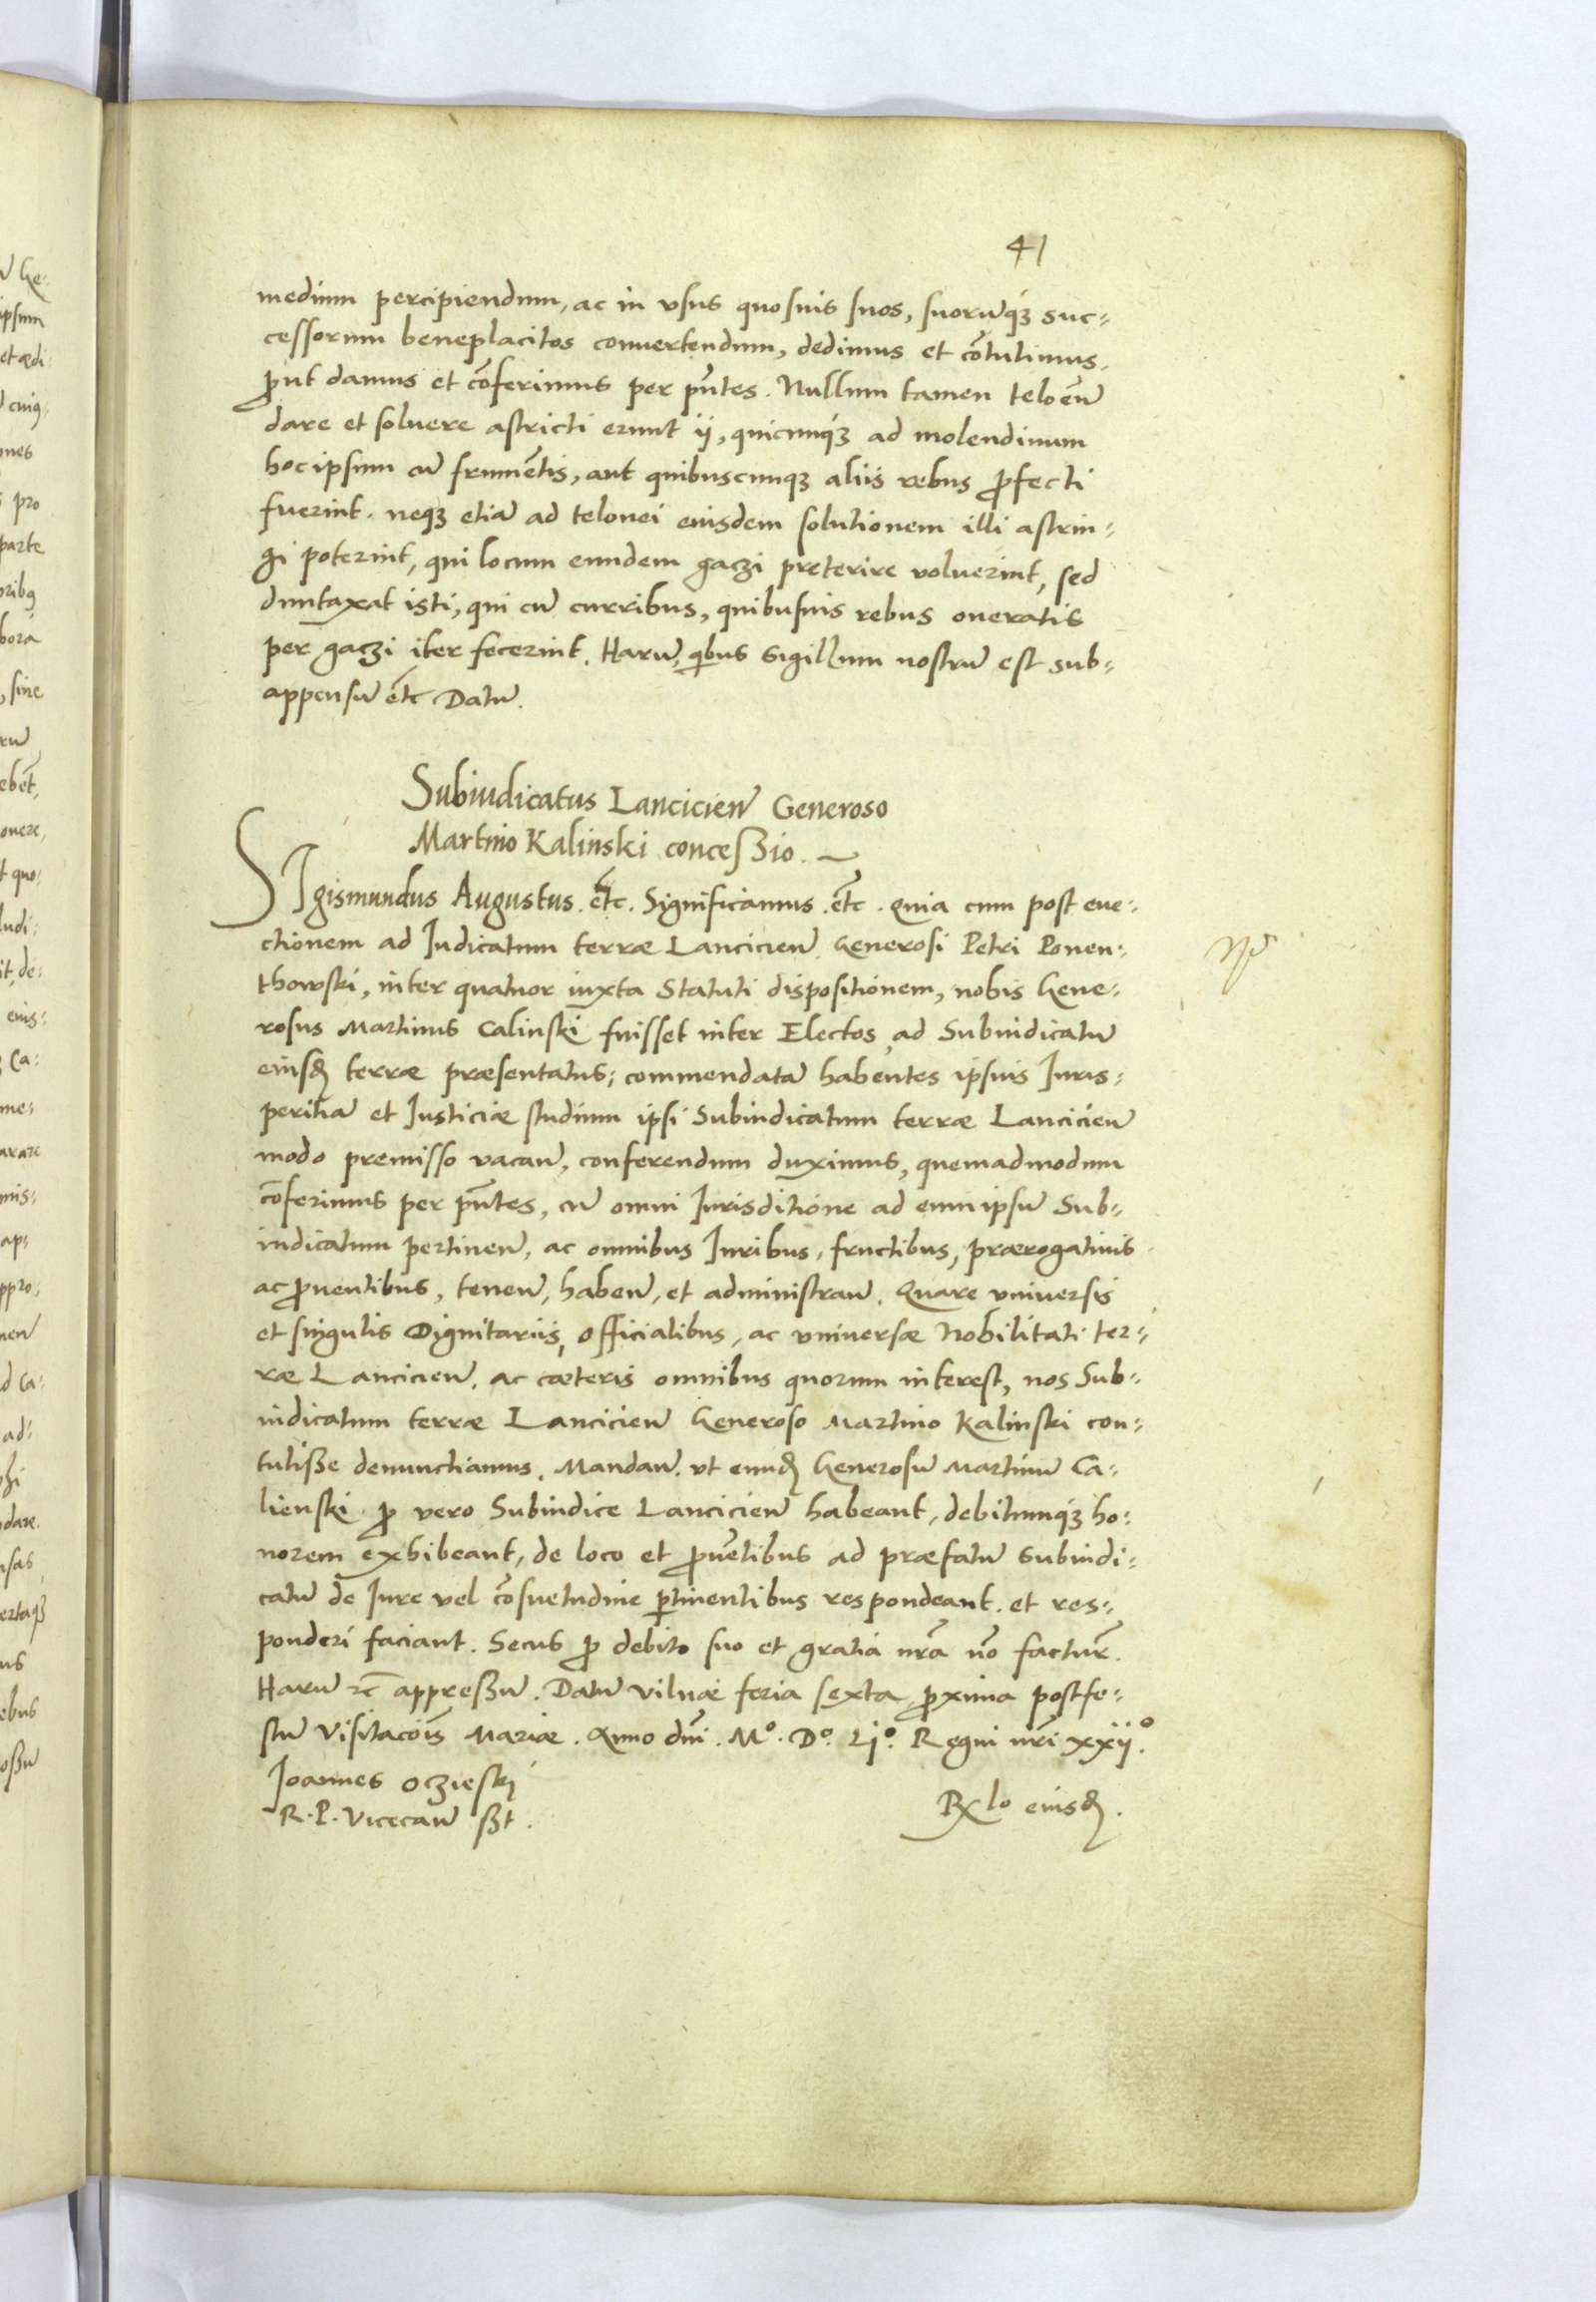 41
medium percipiendum, ac in vsus quosuis suos, suorūq́ʒ suc⸗
cessorum beneplacitos conuertendum, dedimus et cōtulimus,
ꝓut damus et cōferimus per pn̄tes. Nullum tamen teloeūm
dare et soluere astricti erunt ij, quicunq́ʒ ad molendinum
hoc ipsum cū frumētis, aut quibuscunqʒ aliis rebus ꝓfecti
fuerint. neqʒ etiā ad telonei eiusdem solutionem illi astrin⸗
gi poterint, qui locum eundem gaczi preterire voluerint, sed
duntaxat isti, qui cū curribus, quibusuis rebus oneratis
per gaczi iter fecerint. Harū, qibus Sigillum nostrū est sub⸗
appensū etc̄ Datū.
Subiudicatus Lancicien̄ Generoso
Martino Kalinski conceßio.
SIgismundus Augustus. etc̄. Significamus. etc̄. quia cum post eue⸗
ctionem ad Iudicatum terræ Lancicien̄. Generosi Petri Ponen⸗
thowski, inter quatuor iuxta Statuti dispositionem, nobis Gene⸗
rosus Martinus Calinski fuisset inter Electos ad Subiudicatū
eiusđ terræ præsentatus; commendatā habentes ipsius Iuris⸗
peritiā et Iusticiæ studium ipsi Subiudicatum terræ Lancicien̄
modo premisso vacan̄, conferendum duximus, quemadmodum
cōferimus per pn̄tes, cū omni Iurisditione ad eum ipsū Sub⸗
iudicatum pertinen̄, ac omnibus Iuribus, fructibus, prærogatiuis
ac ꝓuentibus, tenen̄, haben̄, et administran̄. Quare vniuersis
et singulis Dignitariis, officialibus, ac vniuersæ Nobilitati ter⸗
ræ Lancicien̄. ac cæteris omnibus quorum interest, nos Sub⸗
iudicatum terræ Lancicien̄ Generoso Martino Kalinski con⸗
tulisse denunctiamus. Mandan̄. vt eunđ Generosū Martinū Ca⸗
lienski ꝓ vero Subiudice Lancicien̄ habeant, debitumq́ʒ ho⸗
norem exhibeant, de loco et ꝓuētibus ad præfatū Subiudi⸗
catū de Iure vel cōsuetudine ꝑtinentibus respondeant. et res⸗
ponderi faciant. Secus ꝓ debito suo et gratia nrā nō factur̄.
Harū etc̄ appressū. Datū Vilnæ feria sexta ꝓxima post fe⸗
stū Visitacōis Mariæ. Anno dn̄i. Mº. Dº. Ljº. Regni nr̄i xxijº.
Joannes Oczieski
R. P. Vicecan̄ ßt.
Rlo eiusđ.